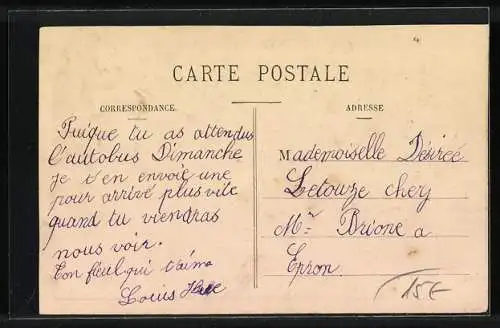 CARTE POSTALE
CORRESPONDANCE.
Puique tu as attendus
l'autobus Dimanche
Je t'en envoie une
pour arrivé plus vite
quand tu viendras
nous voir.
Ton fieul qui t'aime
Louis
ADRESSE
Mademoiselle Désirée
Letouze chez
Mr Brione a
Epron.
15€